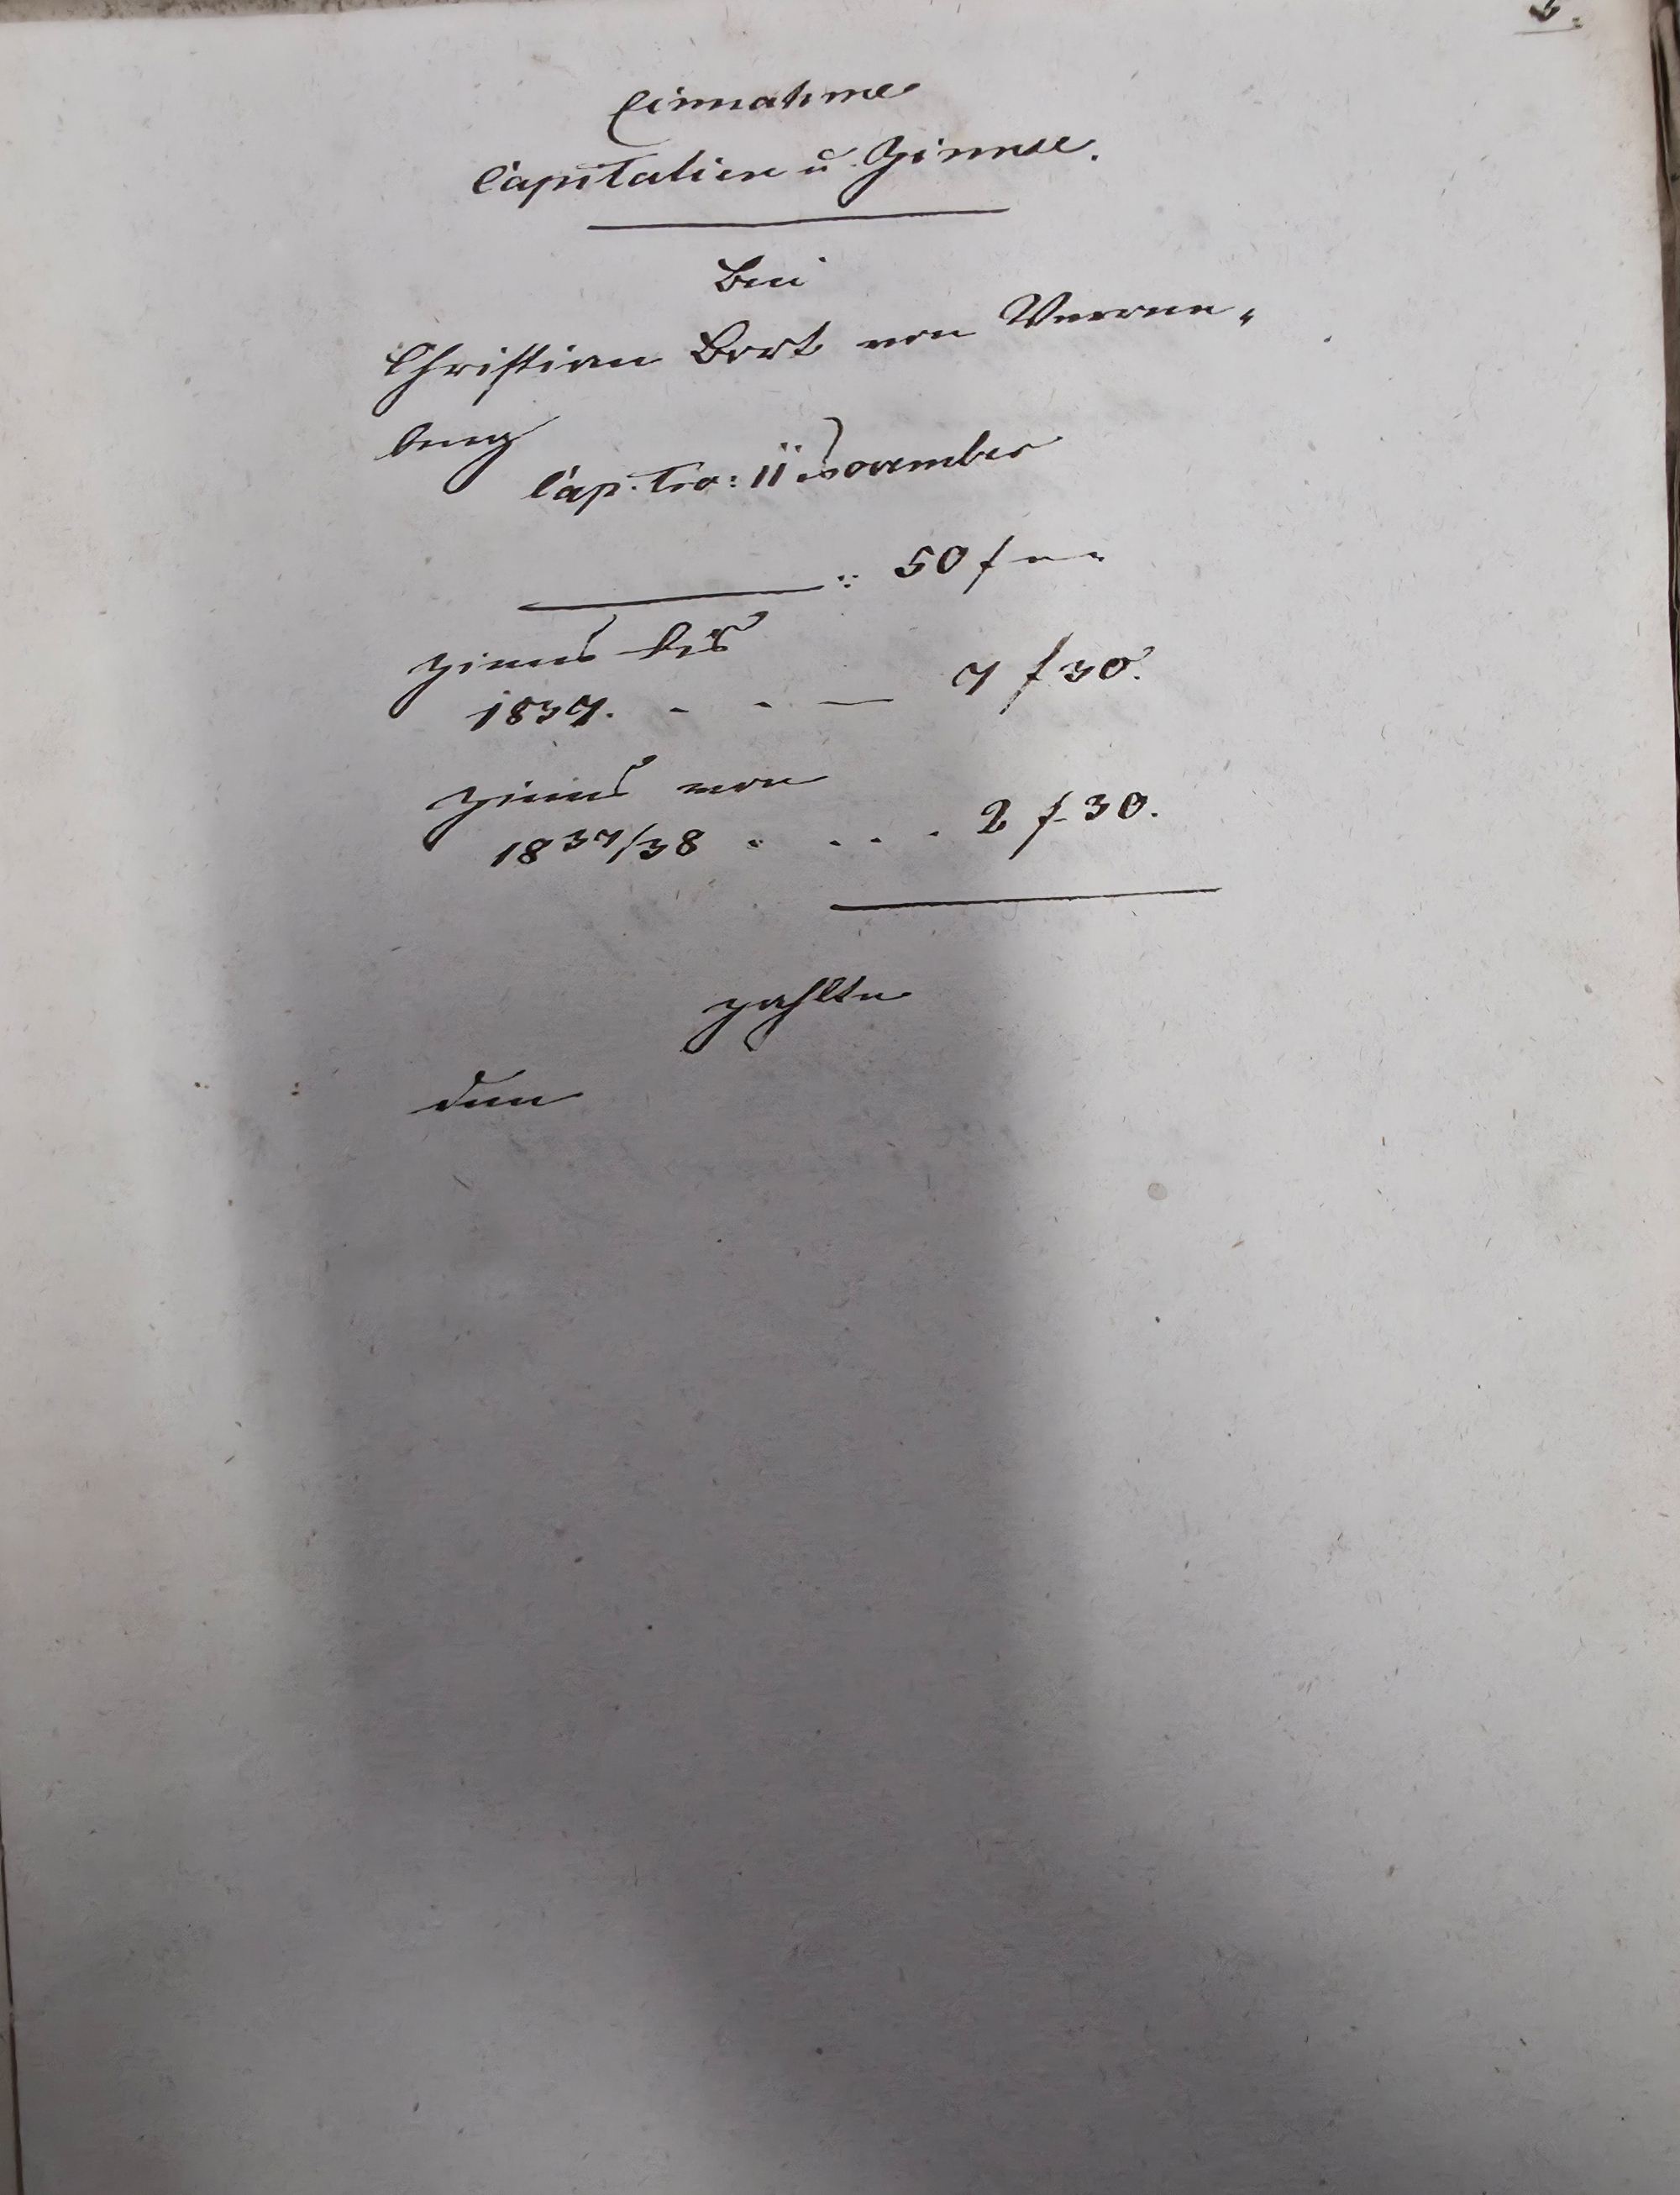 Einnahme
Capitalien u Zinnse.
Bei
Christian Bort von
Cap. Tro: 11 November
50 f
Zinns bis
1837. . . — 7 f 30.
Zinns von
1837/38 . . . . . 2 f 30.
zahlte
den